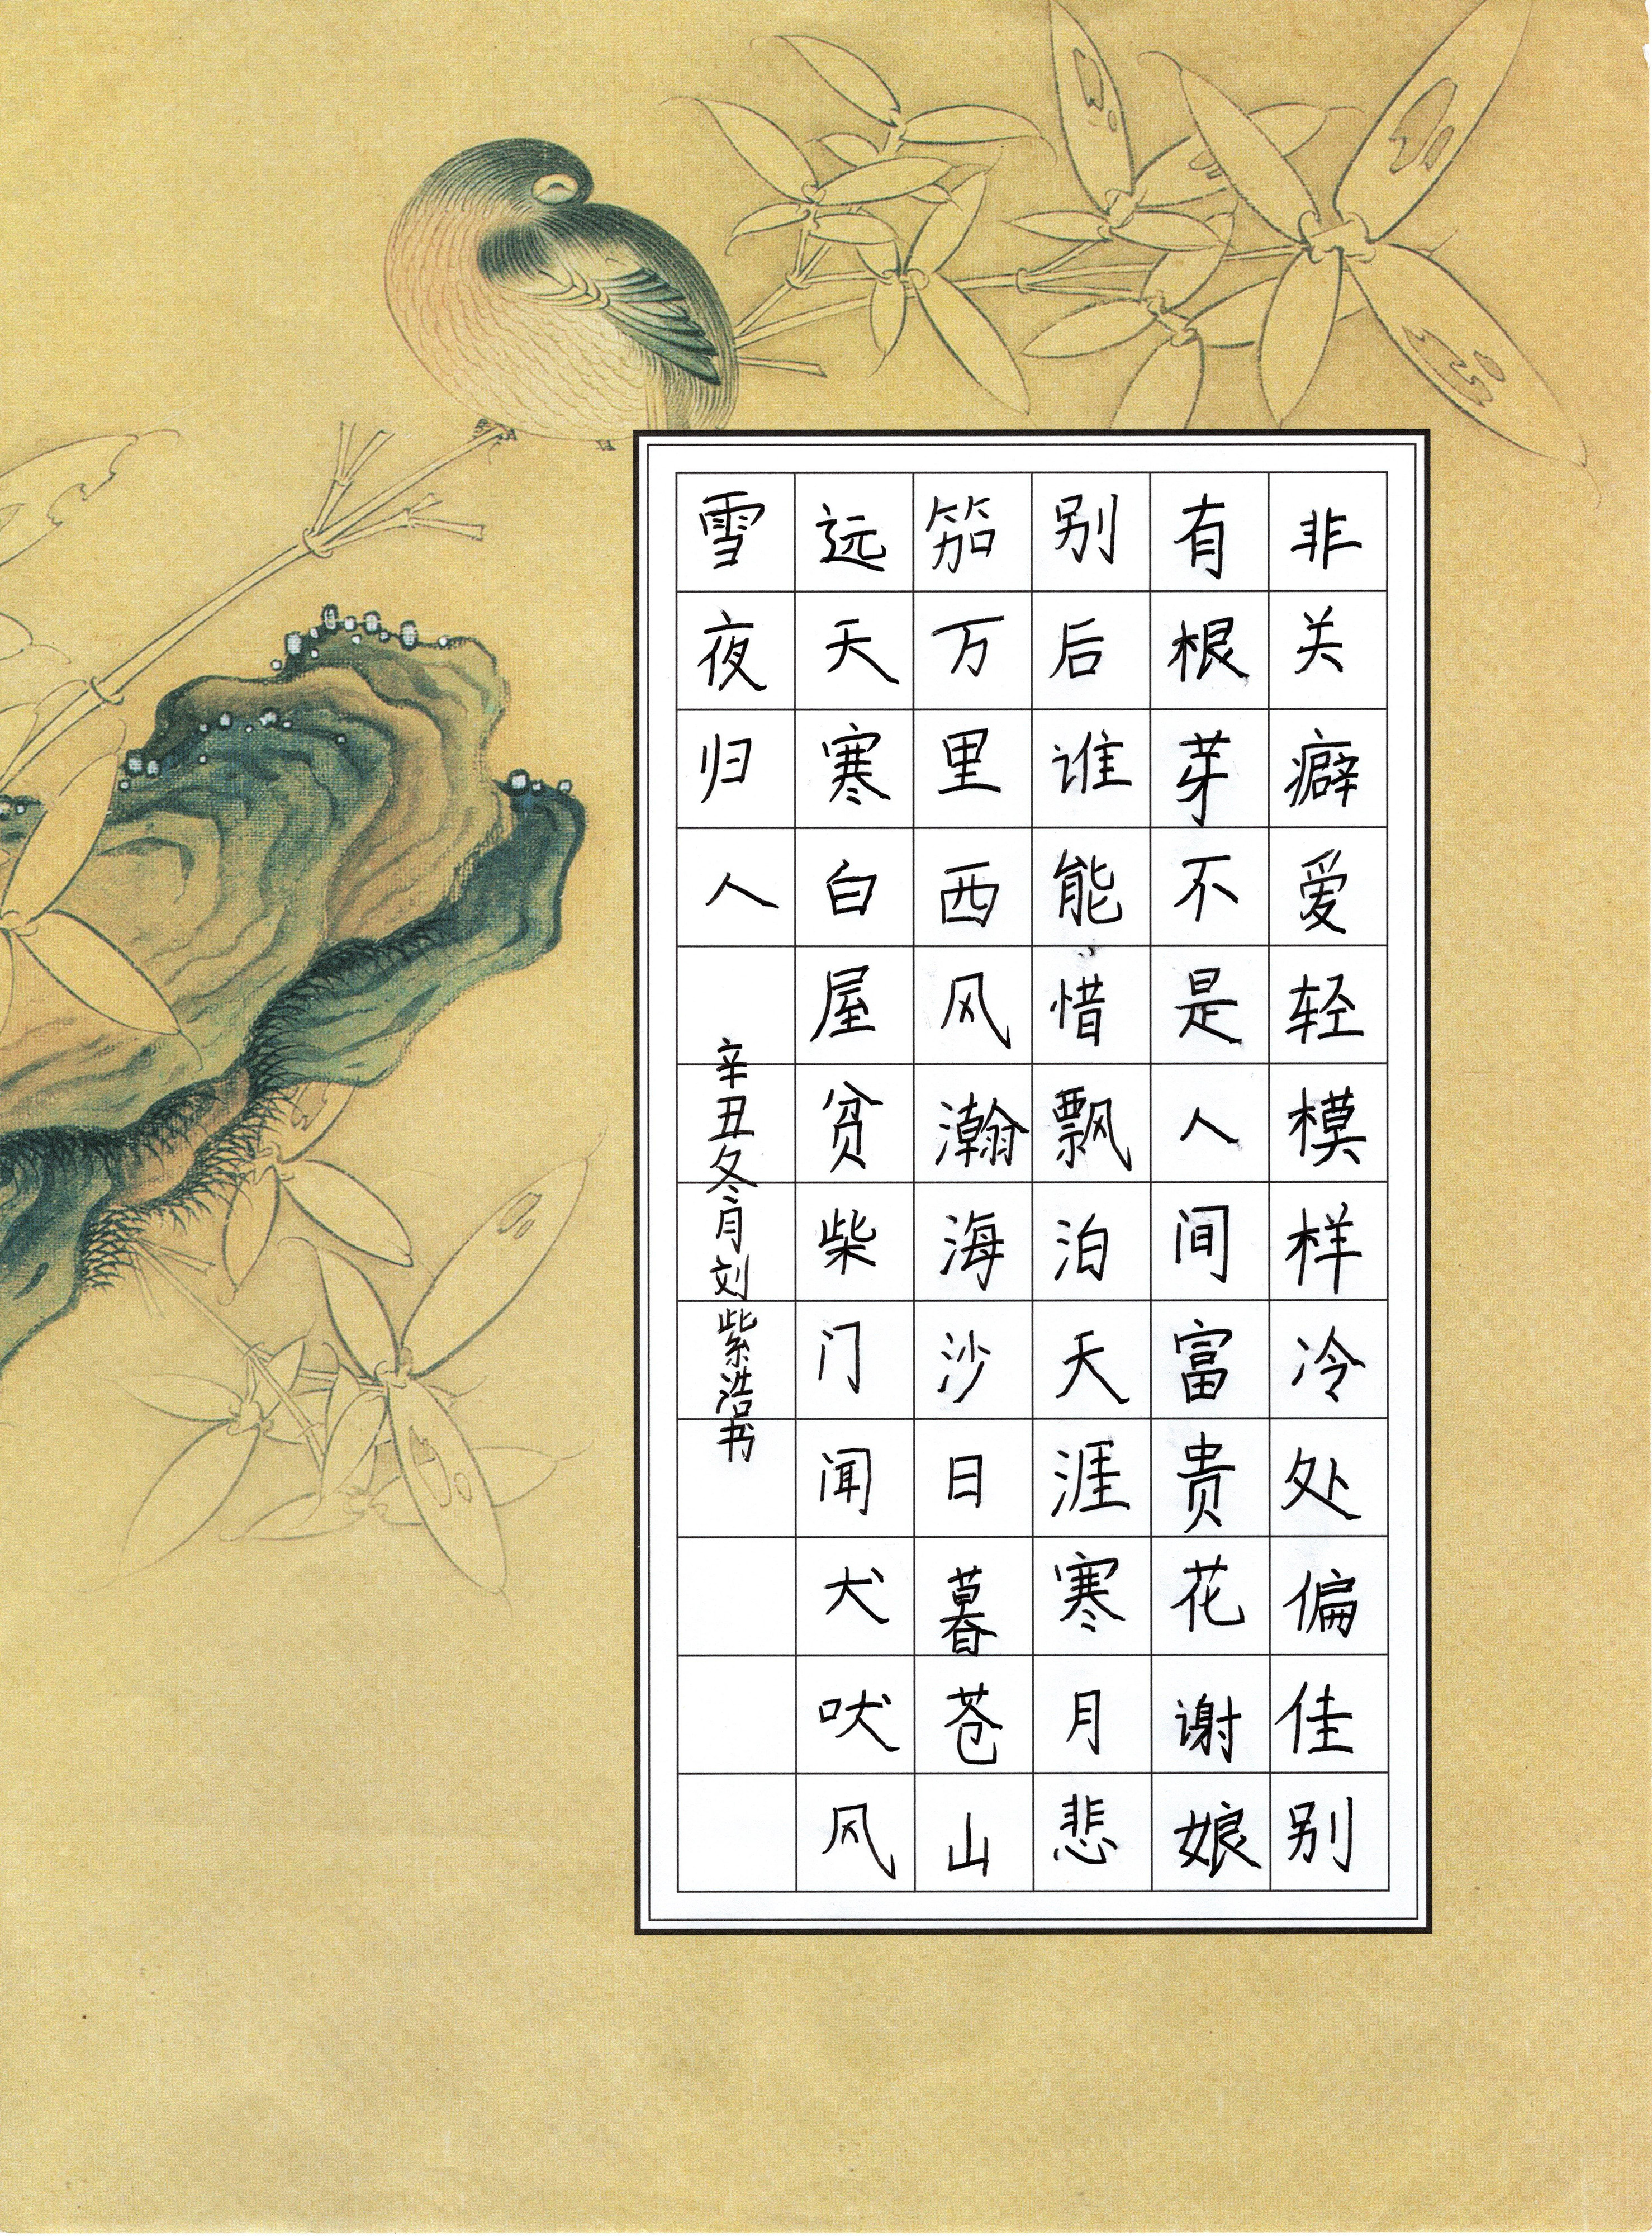 非关癖爱轻模样冷处偏佳别
有根芽不是人间富贵花谢娘
别后谁能惜飘泊天涯寒月悲
笳万里西风瀚海沙日暮苍山
远天寒白屋贫柴门闻犬吠风
雪夜归人
辛丑冬月刘紫浩书